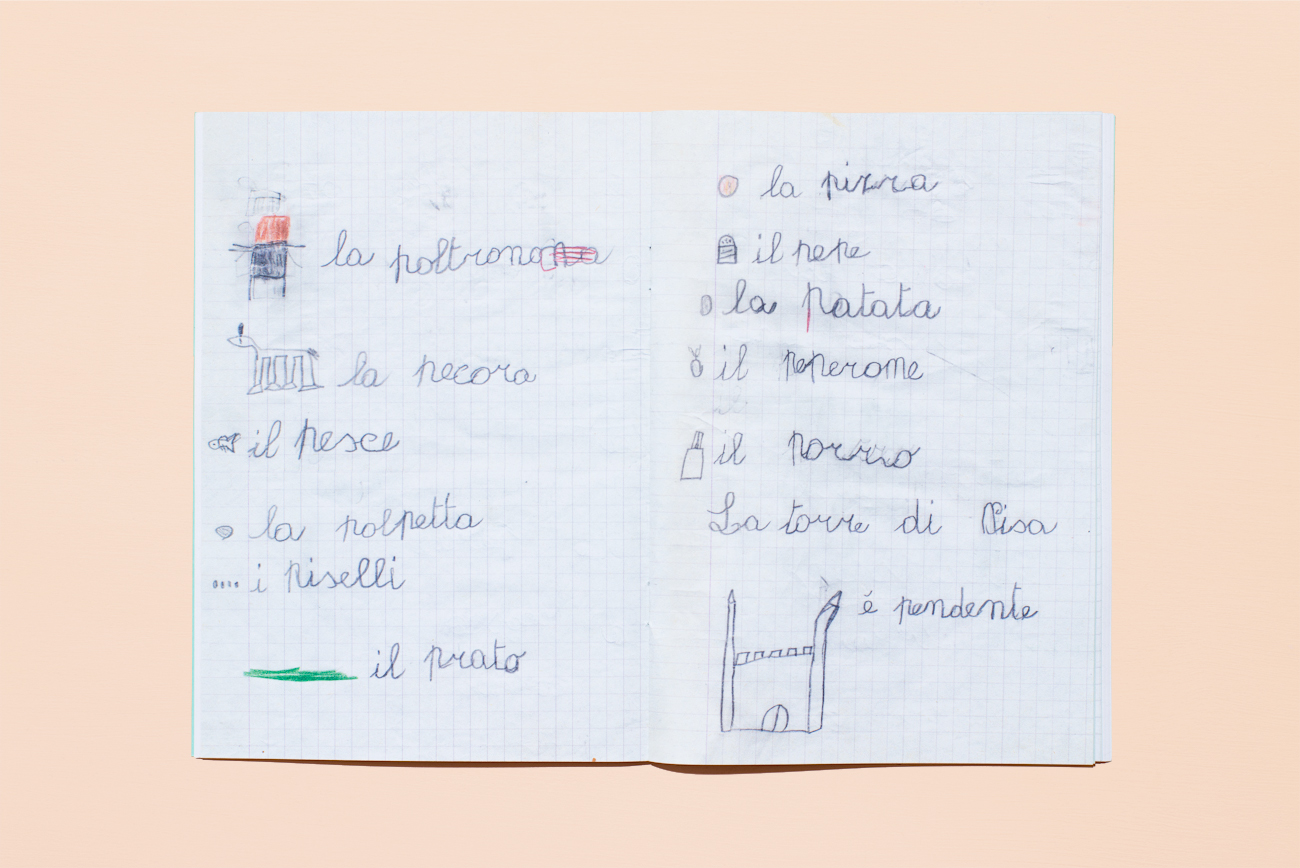 la poltrona
la pecora
il pesce
la polpetta
i piselli
il prato
la pizza
il pepe
la patata
il peperone
il pozzo
La torre di Pisa
é pendente